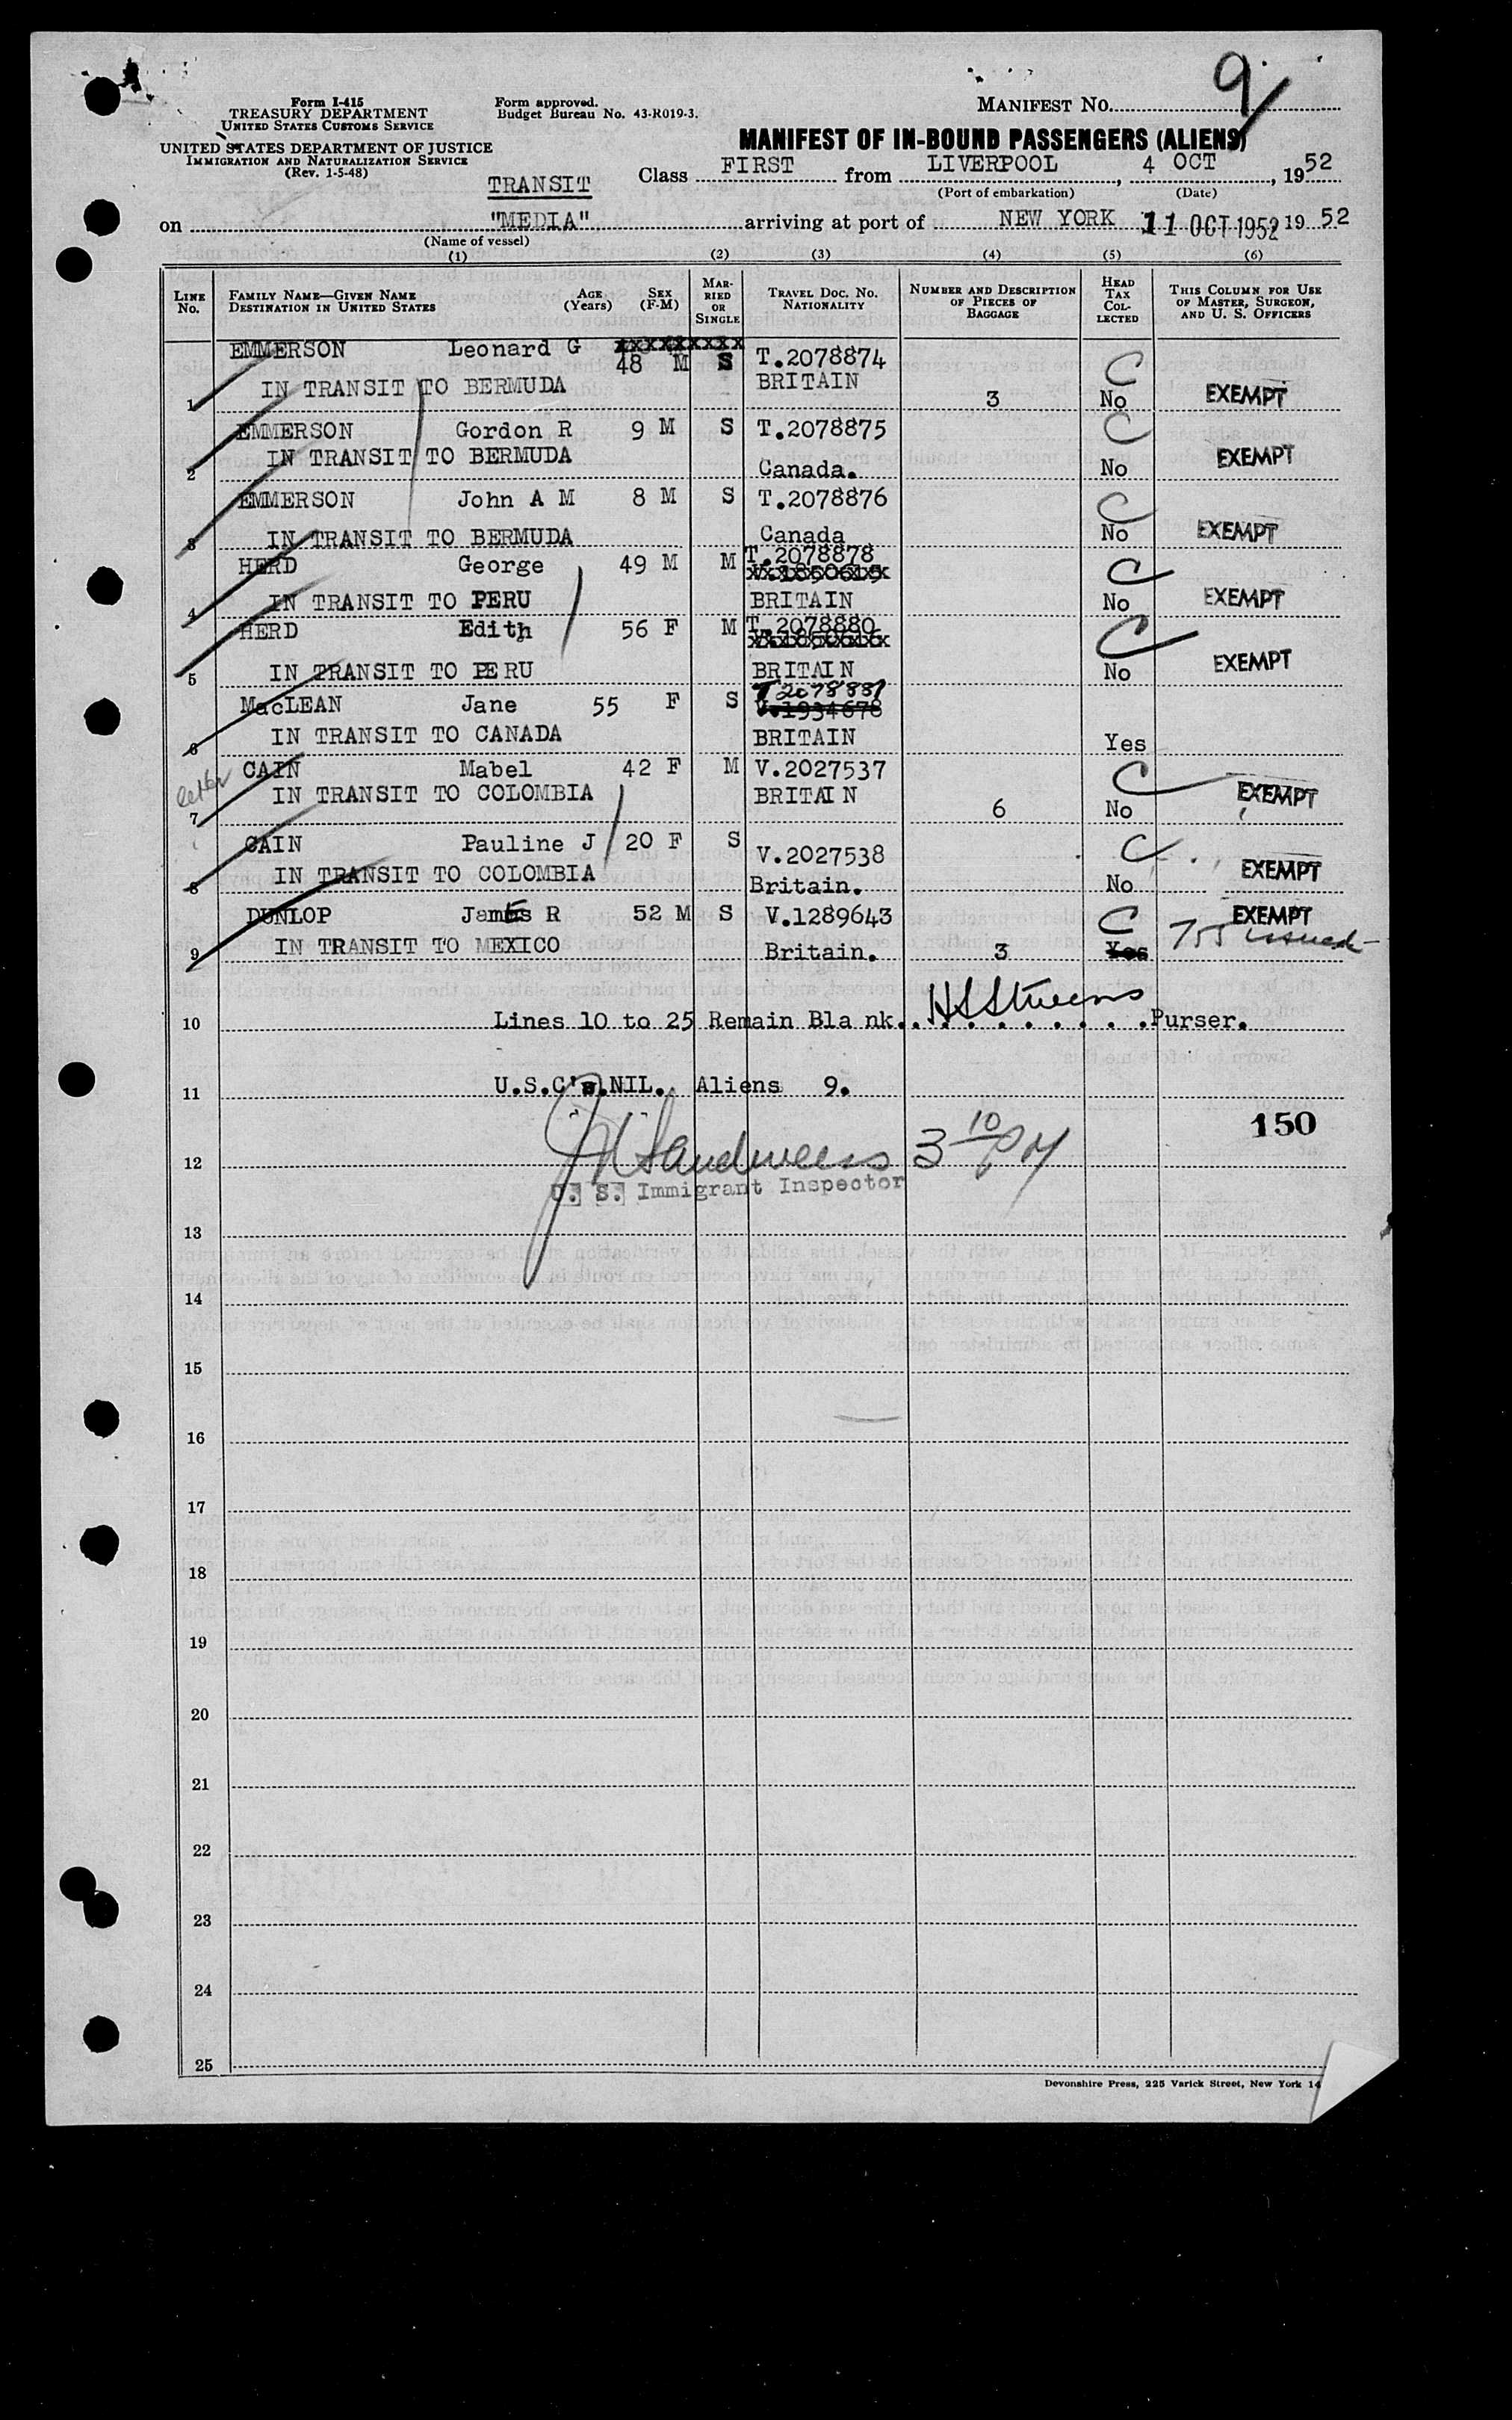 9
Form I-415
TREASURY DEPARTMENT
UNITED STATES CUSTOMS SERVICE
UNITED STATES DEPARTMENT OF JUSTICE
IMMIGRATION AND NATURALIZATION SERVICE
(Rev. 1-5-48)
Form approved.
Budget Bureau No. 43-R019-3.
MANIFEST NO.
MANIFEST OF IN-BOUND PASSENGERS (ALIENS)
TRANSIT
Class FIRST from LIVERPOOL, 4 OCT, 1952
(Port of embarkation) (Date)
on "MEDIA" arriving at port of NEW YORK 11 OCT 1952 1952
(Name of vessel)
(1) (2) (3) (4) (5) (6)
LINE No. FAMILY NAME—GIVEN NAME DESTINATION IN UNITED STATES AGE (Years) SEX (F-M) MARRIED OR SINGLE TRAVEL DOC. NO. NATIONALITY NUMBER AND DESCRIPTION OF PIECES OF BAGGAGE HEAD TAX COLLECTED THIS COLUMN FOR USE OF MASTER, SURGEON, AND U. S. OFFICERS
EMMERSON Leonard G xxxxxxxxx
48 M S T.2078874 C
1 IN TRANSIT TO BERMUDA BRITAIN 3 No EXEMPT
EMMERSON Gordon R 9 M S T.2078875 C
2 IN TRANSIT TO BERMUDA Canada. No EXEMPT
EMMERSON John A M 8 M S T.2078876 C
3 IN TRANSIT TO BERMUDA Canada No EXEMPT
HERD George 49 M M T.2078878 C
4 IN TRANSIT TO PERU BRITAIN No EXEMPT
HERD Edith 56 F M T.2078880 C
5 IN TRANSIT TO PERU BRITAIN No EXEMPT
MacLEAN Jane 55 F S T2078881
V.1934678
6 IN TRANSIT TO CANADA BRITAIN Yes
letter
CAIN Mabel 42 F M V.2027537 C
7 IN TRANSIT TO COLOMBIA BRITAIN 6 No EXEMPT
CAIN Pauline J 20 F S V.2027538 C
8 IN TRANSIT TO COLOMBIA Britain. No EXEMPT
DUNLOP James R 52 M S V.1289643 C EXEMPT
9 IN TRANSIT TO MEXICO Britain. 3 Yes 755 issued
10 Lines 10 to 25 Remain Blank. HSStevens Purser.
11 U.S.C's.NIL. Aliens 9.
150
12 Sandweiss 3 10 PM
U. S. Immigrant Inspector
13
14
15
16
17
18
19
20
21
22
23
24
25
Devonshire Press, 225 Varick Street, New York 14